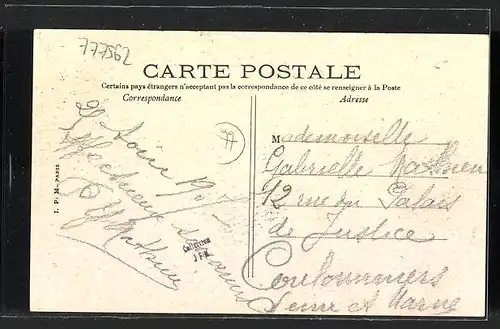 777562
CARTE POSTALE
Certains pays étrangers n'acceptant pas la correspondance de ce côté se renseigner à la Poste
Correspondance
Adresse
77
Juin 190
Affectueux
Mathieu
Collection
J F M
I. P. M. PARIS
Mademoiselle
Gabrielle Mathieu
12 rue du Palais
de Justice
Coulommiers
Seine et Marne